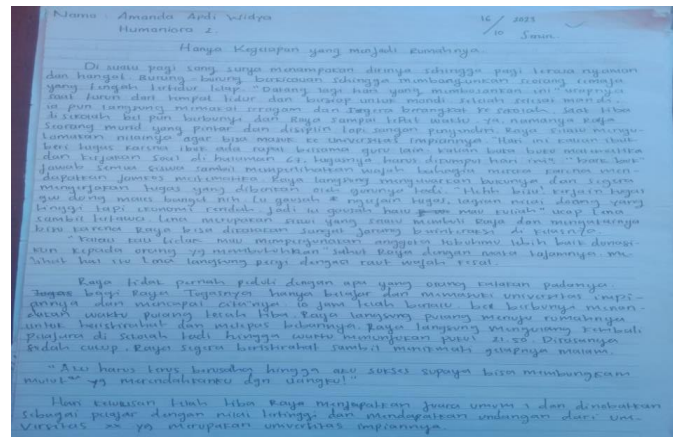 Nama : Amanda Apdi Widya 16/10 2023
Humaniora 2. Senin
Hanya Kegelapan yang menjadi Rumahnya.
Di suatu pagi sang surya menampakan dirinya sehingga pagi terasa nyaman
dan hangat. Burung-burung berkicauan sehingga membangunkan seorang remaja
yang tengah tertidur lelap. "Datang lagi hari yang membosankan ini" ucapnya
saat turun dari tempat tidur dan bersiap untuk mandi. Setelah selesai mandi.
ia pun langsung memakai seragam dan segera berangkat ke sekolah. Saat tiba
di sekolah bel pun berbunyi dan Raya sampai tepat waktu. Ya, namanya Raya
seorang murid yang pintar dan disiplin tapi sangat penyendiri. Raya selalu mengu-
tamakan nilainya agar bisa masuk ke universitas impiannya. "Hari ini kalian ibu
beri tugas karena ibu ada rapat bersama guru lain, kalian baca buku matematika
dan kerjakan soal di halaman 67. tugasnya harus dikumpul hari ini" "baik buk"
jawab semua siswa sambil memperlihatkan wajah bahagia mereka karena men-
dapatkan jamkos matematika. Raya langsung mengeluarkan bukunya dan segera
mengerjakan tugas yang diberikan oleh gurunya tadi. "Heleh bisu! kerjain tugas
gw dong males banget nih. Lu gausah ngejain tugas, lagian nilai doang yang
tinggi tapi ekonomi rendah. Jadi lu gausah mau kuliah" ucap Lena
sambil tertawa. Lena merupakan siswi yang selalu membuli Raya dan mengatainya
bisu karena Raya bisa dikatakan sangat jarang berinteraksi di kelasnya.
"Kalau kau tidak mau mempergunakan anggota tubuhmu lebih baik donasi-
kan kepada orang yg membutuhkan" sahut Raya dengan mata tajamnya. me-
lihat hal itu Lena langsung pergi dengan raut wajah kesal.
Raya tidak pernah peduli dengan apa yang orang katakan padanya.
bagi Raya Tugasnya hanya belajar dan memasuki universitas impi-
annya dan mencapai cita-nya. 10 jam telah berlalu. bel berbunyi menan-
dakan waktu pulang telah tiba. Raya langsung pulang menuju rumahnya
untuk beristirahat dan melepas bebannya. Raya langsung mengulang kembali
pelajaran di sekolah tadi hingga waktu menunjukan pukul 21.50. Dirasanya
sudah cukup. Raya segera beristirahat sambil menikmati gelapnya malam.
"Aku harus terus berusaha hingga aku sukses supaya bisa membungkam
mulut" yg merendahkanku dgn uangku!"
Hari kelulusan telah tiba Raya mendapatkan juara umum 1 dan dinobatkan
sebagai pelajar dengan nilai tertinggi dan mendapatkan undangan dari uni-
versitas xx yg merupakan universitas impiannya.